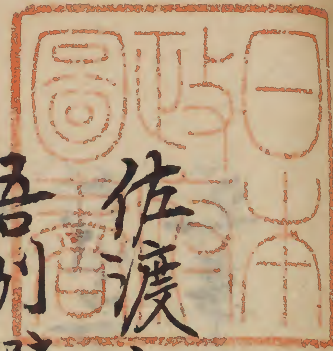 日本
政府
圖書
佐渡
吾